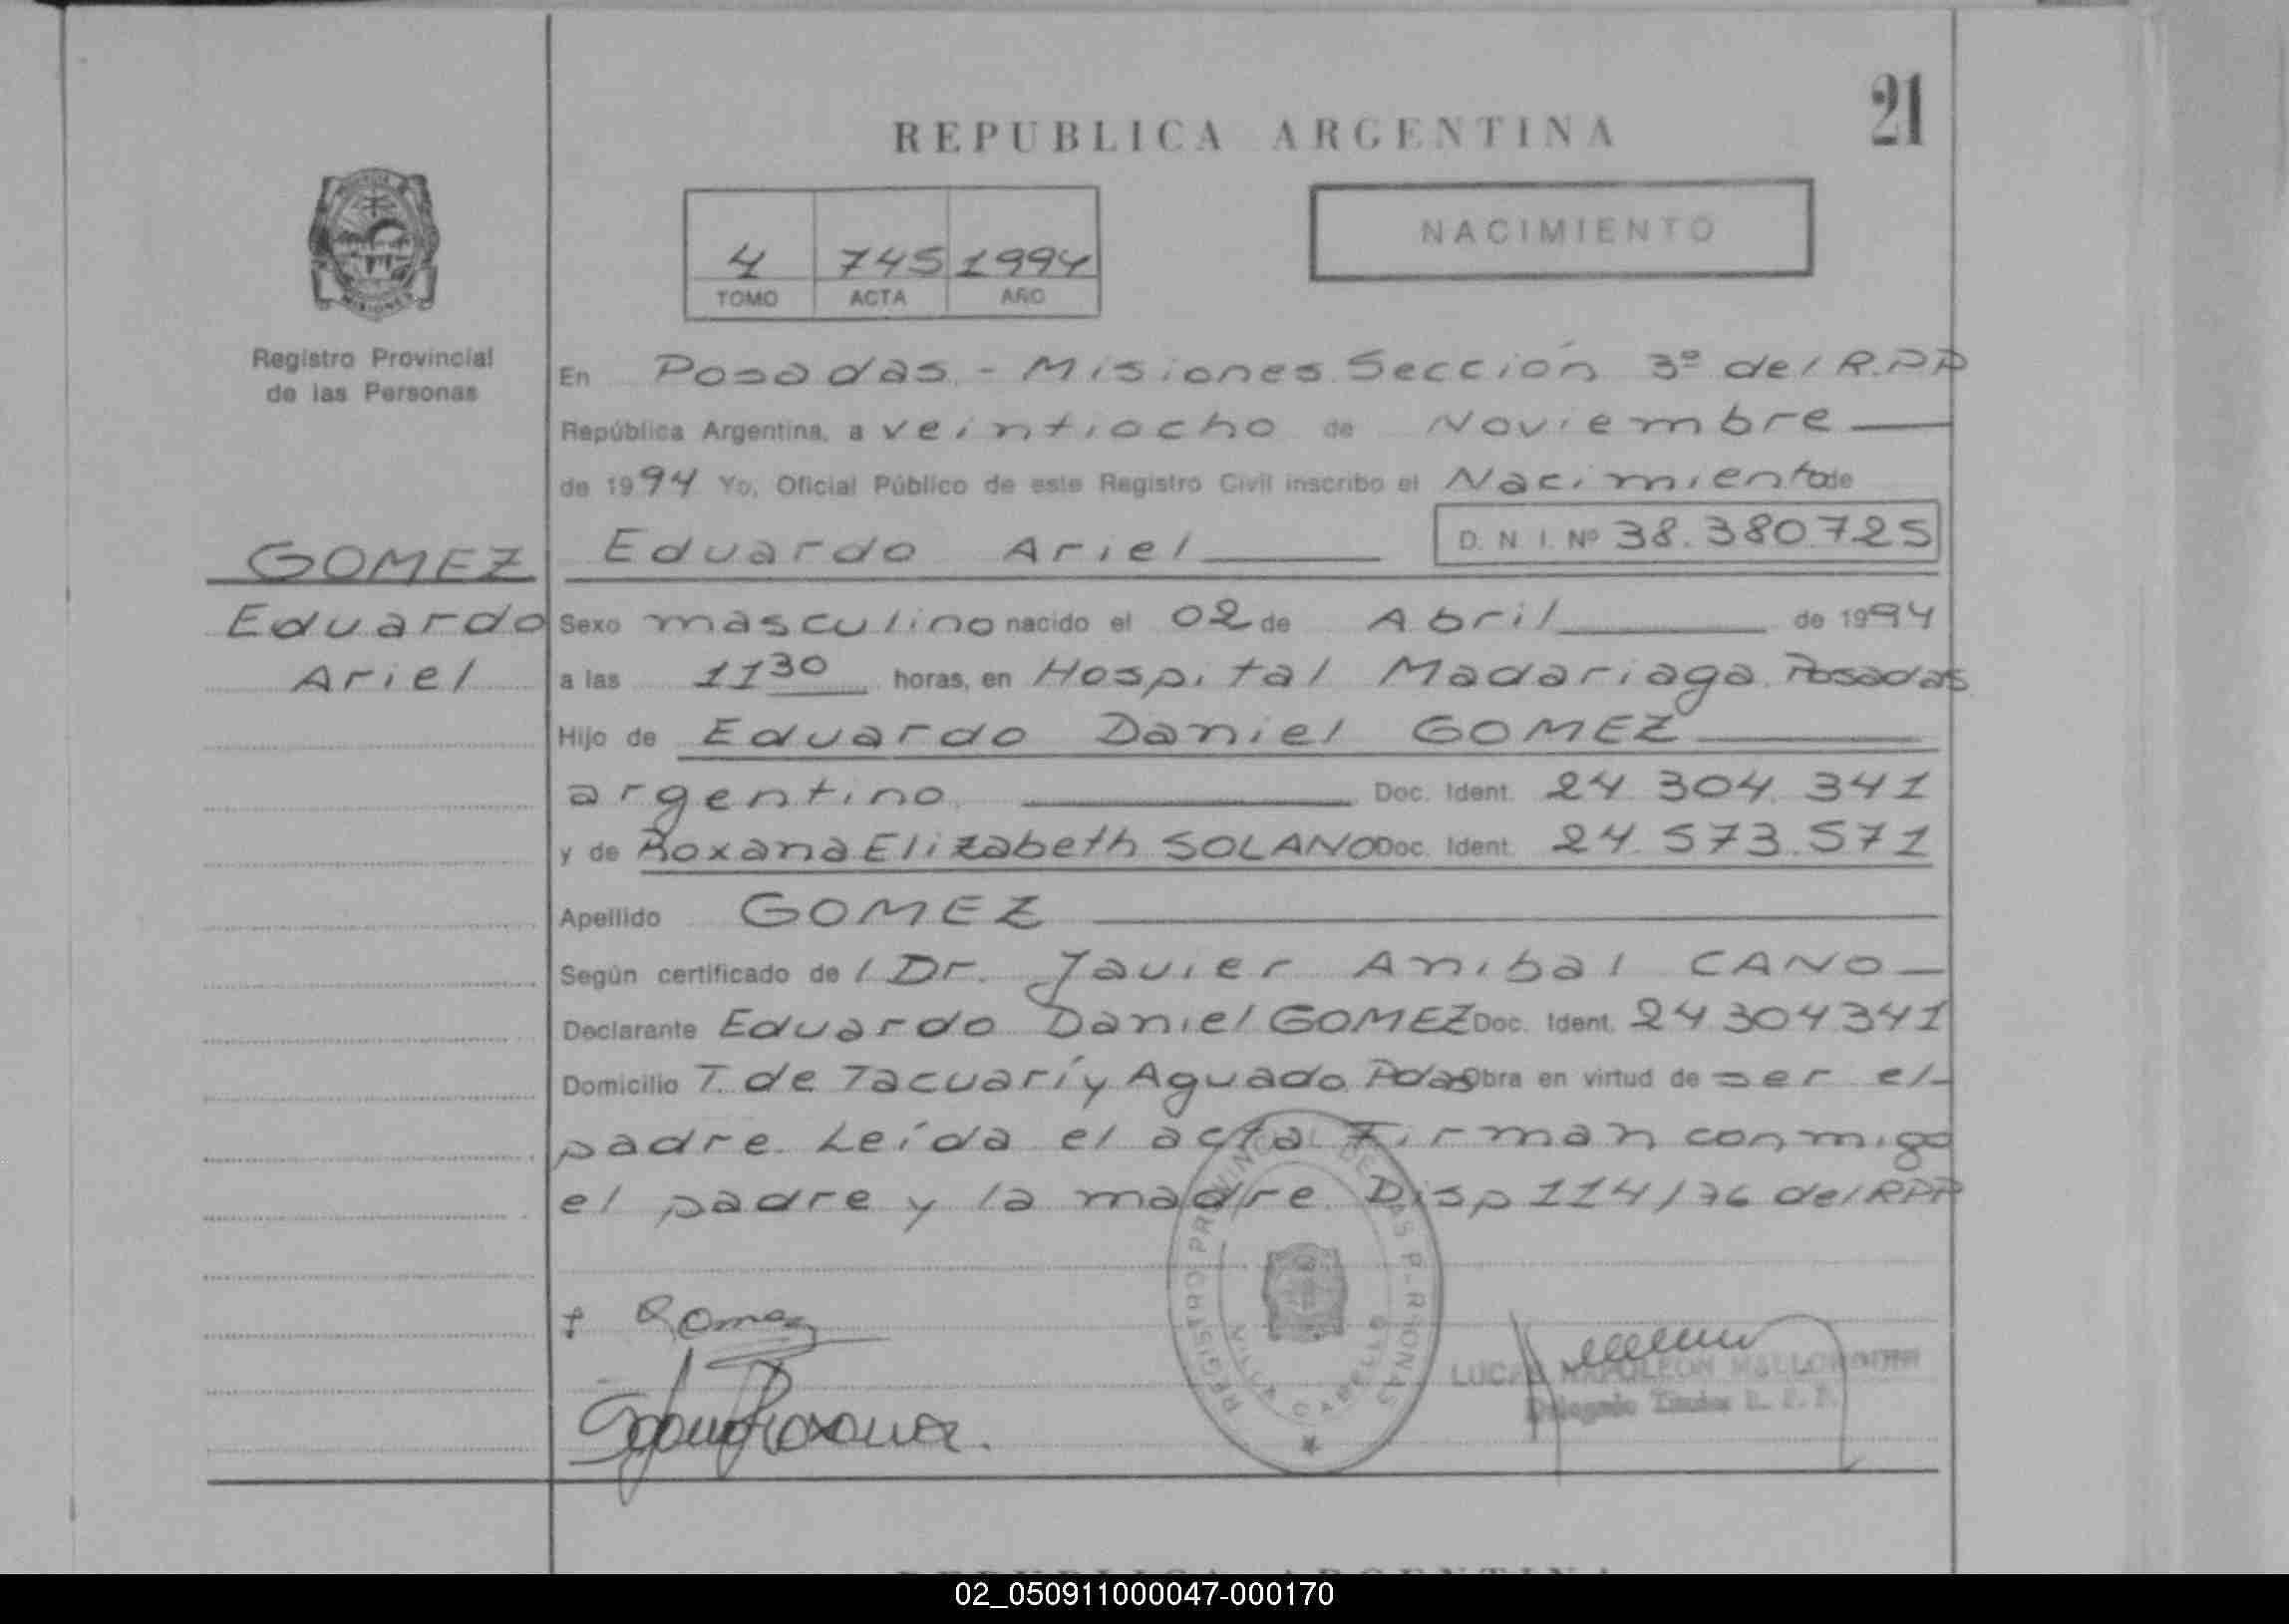 21
REPUBLICA ARGENTINA
NACIMIENTO
4 745 1994
TOMO ACTA AÑO
MISIONES
Registro Provincial
de las Personas
En Posadas - Misiones Sección 3º del R.P.P
República Argentina, a veintiocho de Noviembre
de 1994 Yo, Oficial Público de este Registro Civil inscribo el Nacimiento de
GOMEZ Eduardo Ariel D. N. I. Nº 38.380.725
Eduardo Sexo masculino nacido el 02 de Abril de 1994
Ariel a las 11 30 horas, en Hospital Madariaga. Posadas
Hijo de Eduardo Daniel GOMEZ
argentino Doc. Ident. 24.304.341
y de Roxana Elizabeth SOLANO Doc. Ident. 24.573.571
Apellido GOMEZ
Según certificado de l Dr. Javier Anibal CANO
Declarante Eduardo Daniel GOMEZ Doc. Ident. 24304341
Domicilio T. de Tacuarí y Aguado Pdas Obra en virtud de ser el
padre. Leída el acta Firman conmigo
el padre y la madre. Disp 114/76 del RPP
Gomez
Roxana.
REGISTRO PROVINCIAL DE LAS PERSONAS
NAPOLEON
Delegado Titular R. P. P.
REPUBLICA ARGENTINA
02_050911000047-000170